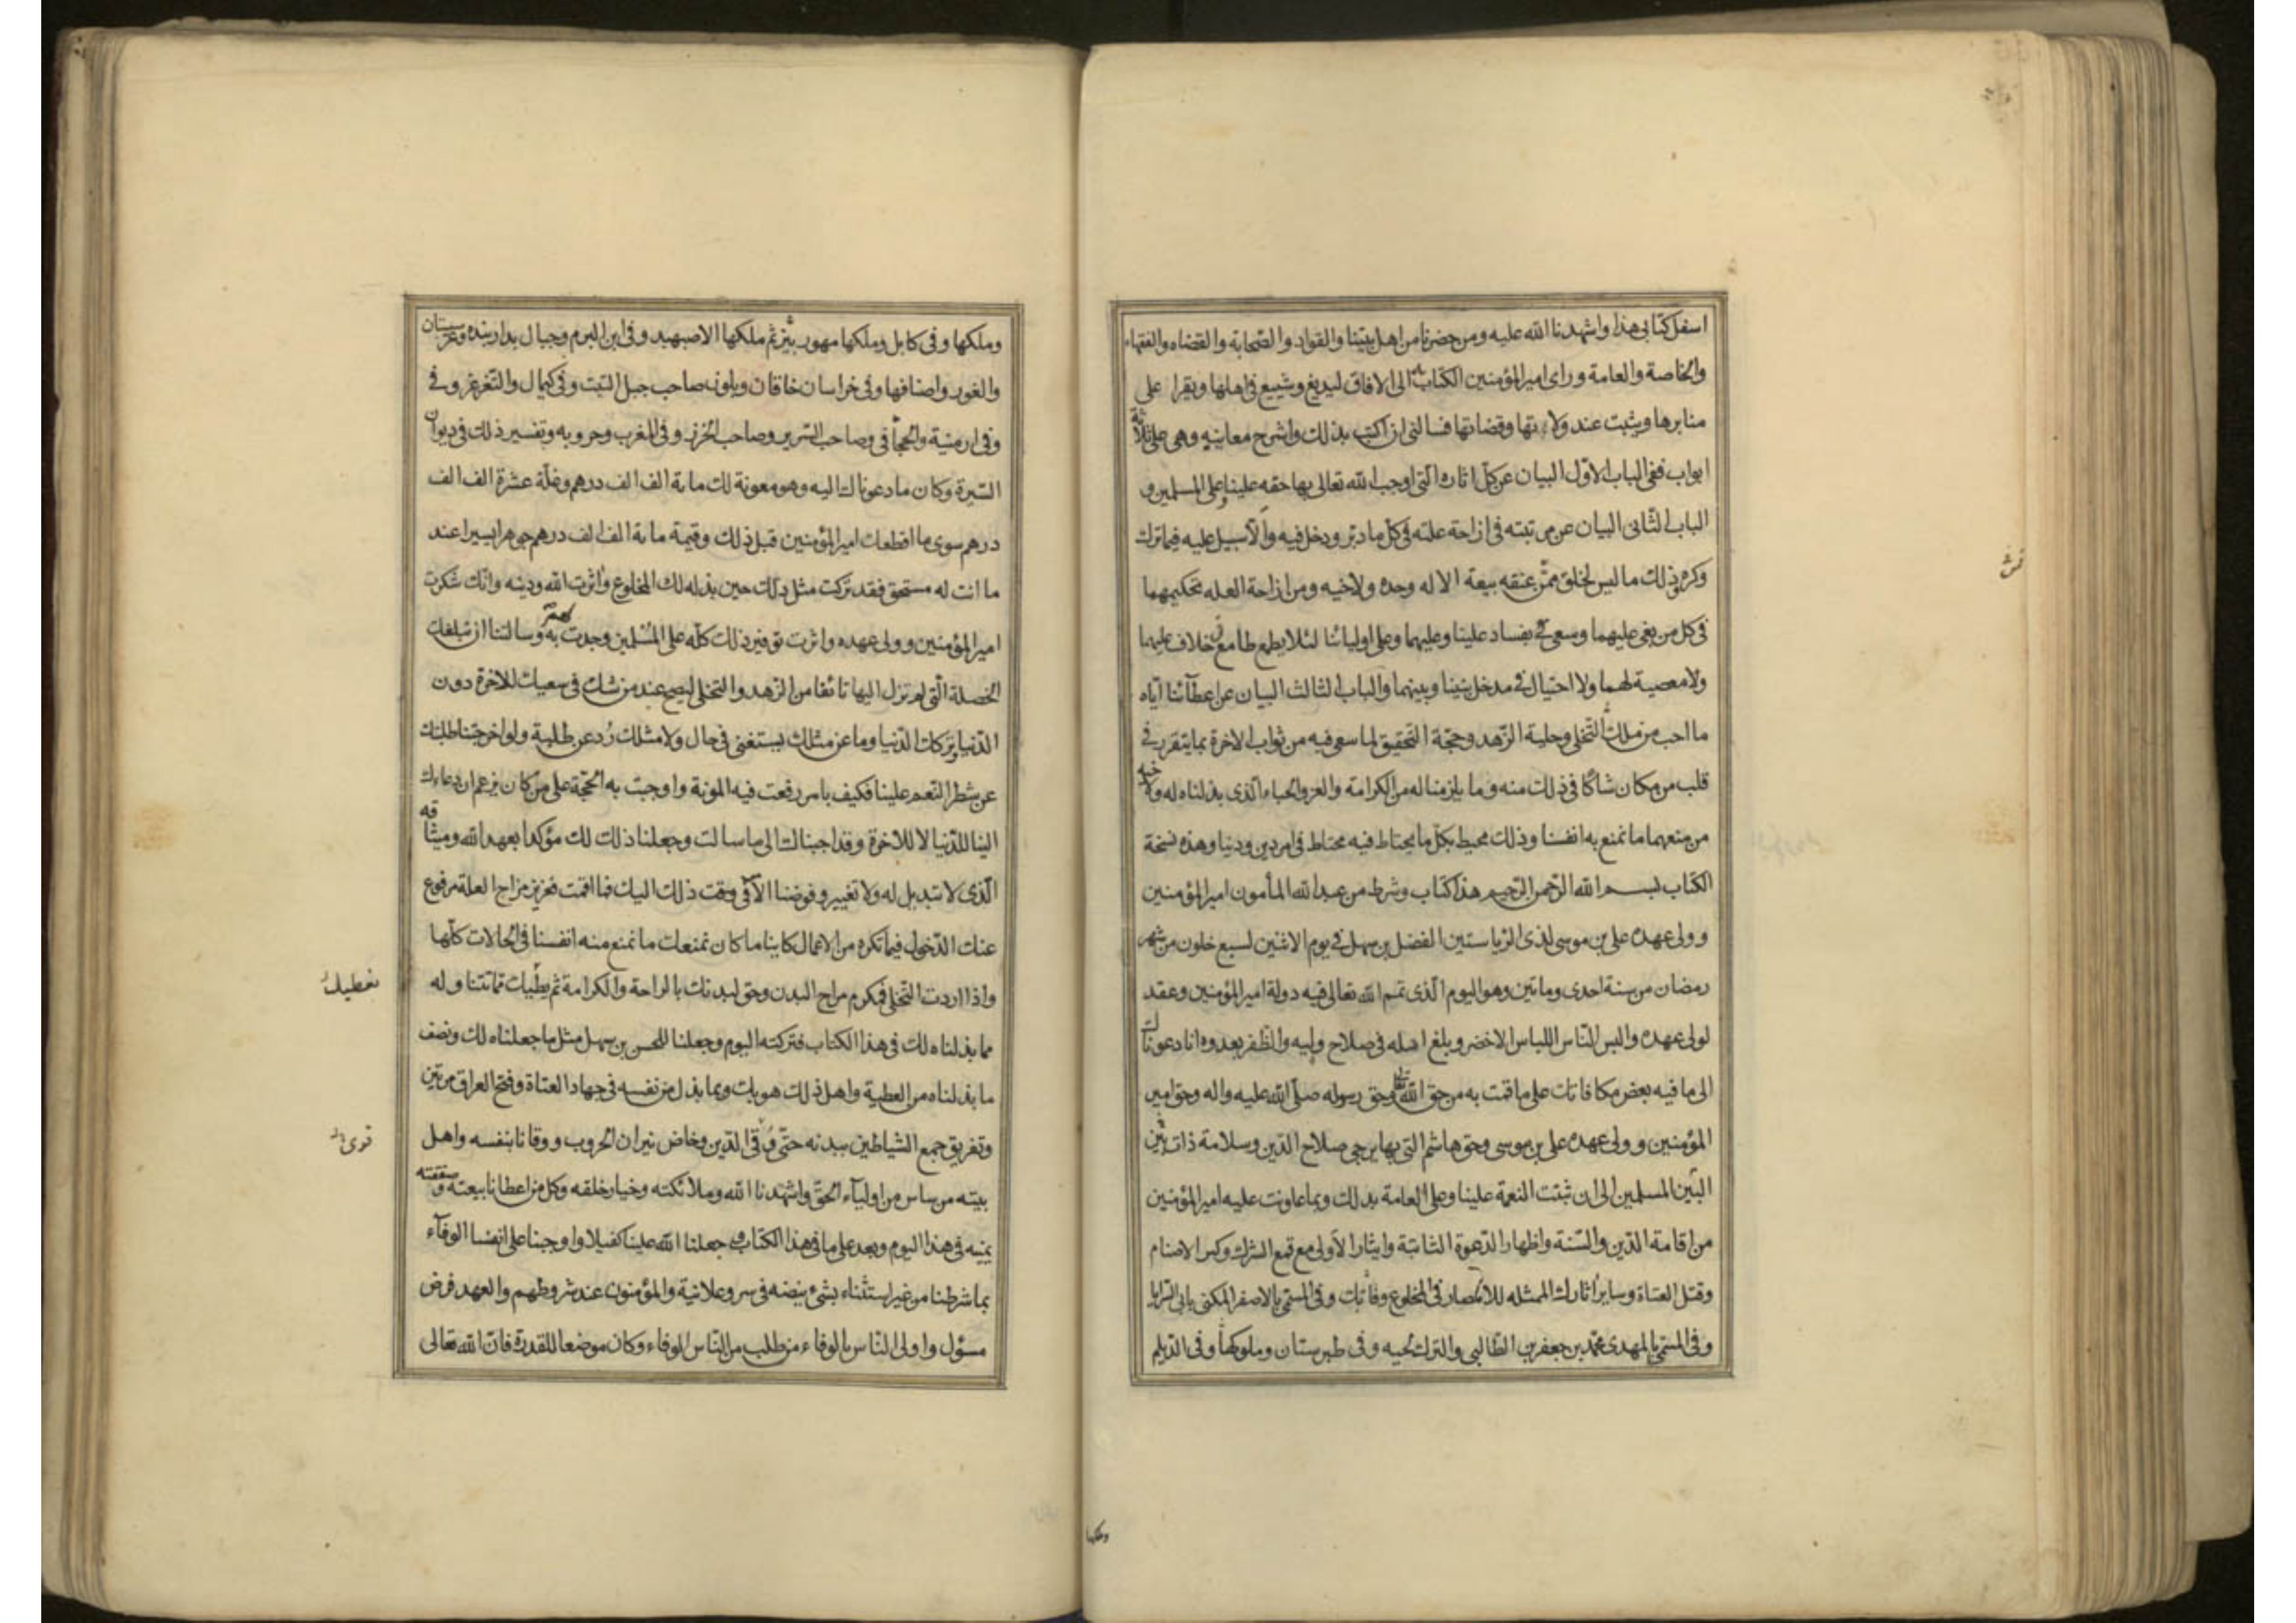 اسفل كتابى هذا واشهدنا الله عليه ومن حضرنا من اهل بيتنا والقواد والصّحابة والقضاه والفقهاء
والخاصة والعامة وراى امير المؤمنين الكتاب به الى الافاق ليذيع وشييع فى اهلها ويقرا على
منابرها ويثبت عند ولاتها وقضاتها فسالنى ان اكتب بذلك واشرح معانيه وهى على ثلاثة
ابواب ففى الباب الاوّل البيان عن كلّ اثاره الّتى اوجب الله تعالى بها حقه علينا وعلى المسلمين و
الباب الثّانى البيان عن مرتبته فى ازاحة علته فى كلّ ما دبّر ودخل فيه والا سبيل عليه فيما ترك
وكره وذلك ما ليس لخلق ممّن عنقه بيعة الا له وحده ولاخيه ومن ازاحة العله تحكيمهما
فى كل من بغى عليهما وسعى فى بفساد علينا وعليهما وعلى اوليائنا لئلا يطمع طامع فى خلاف عليهما
ولا معصية لهما ولا احتيال فى مدخل بيننا وبينهما والباب الثالث البيان عن اعطآئنا ايّاه
ما احب من ملك التّخلى وحلية الزّهد وحجّة التّحقيق لما سعى فيه من ثواب الاخرة بما يتقرر فى
قلب من كان شاكّا فى ذلك منه وما يلزمنا له من الكرامة والعز والحباء الّذى بذلناه له ولاخيه
من منعهما ما نمنع به انفسنا وذلك محيط بكلّ ما يحتاط فيه محتاط فى امر دين ودنيا وهذه نسخة
الكتاب بسم الله الرّحمن الرّحيم هذا كتاب وشرط من عبد الله المأمون امير المؤمنين
وولى عهده على بن موسى لذى الرّياستين الفضل بن سهل فى يوم الاثنين لسبع خلون من شهر
رمضان من سنة احدى وماتين وهو اليوم الّذى تمم الله تعالى فيه دولة امير المؤمنين وعقد
لولى عهده والبس النّاس اللباس الاخضر وبلغ امله فى صلاح وليه والظّفر بعدوه انا دعوناك
الى ما فيه بعض مكافاتك على ما قمت به من حق الله تعالى وحق رسوله صلّى الله عليه واله وحق امير
المؤمنين وولى عهده على بن موسى وحق هاشم التى بها يرجى صلاح الدّين وسلامة ذات بين
البيّن المسلمين الى ان ثبتت النعمة علينا وعلى العامة بذلك وبما عاونت عليه امير المؤمنين
من اقامة الدّين والسّنة واظهار الدّعوة الثانية وايثار الاولى مع قمع الشرك وكسر الاصنام
وقتل العتاة وساير اثارك الممثله للامصار فى المخلوع وقاتك وفى المسمّى بالاصفر المكنى بابى السّرايا
وفى المسمّى بالمهدى محمّد بن جعفر بن الطّالبى والترك وفى طبرستان وملوكها وفى الدّيلم
وملكها
وملكها وفى كابل وملكها مهور بيّن ثم ملكها الاصبهبد وفى ابن البرم وجبال بداربنده وغرسستان
والغور واصنافها وفى خراسان خاقان وبلون صاحب جبل التبت وفى كيمال والتّغرغر وفى
وفى ارمنية والحجاز فى وصاحب السّرير وصاحب الخزر وفى المغرب وحروبه وتفسير ذلك فى ديوان
السّيرة وكان ما دعوناك اليه وهو معونة لك مائة الف الف درهم وغلّة عشرة الف الف
درهم سوى ما اقطعك امير المؤمنين قبل ذلك وقيمة مائة الف الف درهم جوهرا يسيرا عند
ما انت له مستحق فقد تركت مثل ذلك حين بذله لك المخلوع واثرت الله ودينه وانّك شكرت
امير المؤمنين وولى عهده واثرت توفير ذلك كلّه على المسلمين وجدت به وسالتنا ان نبلغك
الخصلة الّتى لم تزل اليها تائقا من الزّهد والتخلى ليصح عند من شك فى سعيك للاخرة دون
الدّنيا وتركك الدّنيا وما عن مثلك يستغنى فى حال ولا مثلك رُد عن طلبة ولو اخرجتنا طلبتك
عن شطر النّعم علينا فكيف بامر رفعت فيه المونة واوجبت به الحجّة على من كان يزعم ان دعاءك
الينا للدّنيا لا للاخرة وقد اجبناك الى ما سالت وجعلنا ذلك لك مؤكدا بعهد الله وميثاقه
الّذى لا تبديل له ولا تغيير وفوضنا الامر فى وقت ذلك اليك فما اقمت فعزيز مزاح العلة مرفوع
عنك الدّخول فيما تكره من الاعمال كاينا ما كان نمنعك ما نمنع منه انفسنا فى الحالات كلّها
واذا اردت التّخلى فمكرم مزاح البدن وحق لبدنك بالراحة والكرامة ثم يطيك مما تتناوله
نعطيك
مما بذلناه لك فى هذا الكتاب فتركته اليوم وجعلنا للحسن بن سهل مثل ما جعلناه لك ونصف
ما بذلناه من العطية واهل ذلك هو بك وبما بذل من نفسه فى جهاد العتاة وفتح العراق مرّتين
وتفريق جمع الشياطين بيدنه حتّى قوى الدّين وخاض نيران الحروب ووقانا بنفسه واهل
قوى
بيته من ساس من اوليآء الحقّ واشهدنا الله وملائكته وخيار خلقه وكل من اعطانا بيعته وصفقته
يمينه فى هذا اليوم وبعد على ما فى هذا الكتاب وجعلنا الله علينا كفيلا واوجبنا على انفسنا الوفآء
بما شرطنا من غير استثناء بشئ ينقضه فى سر وعلانية والمؤمنون عند شروطهم والعهد فرض
مسؤل واولى النّاس بالوفاء من طلب من النّاس الوفاء وكان موضعا للقدرة فانّ الله تعالى